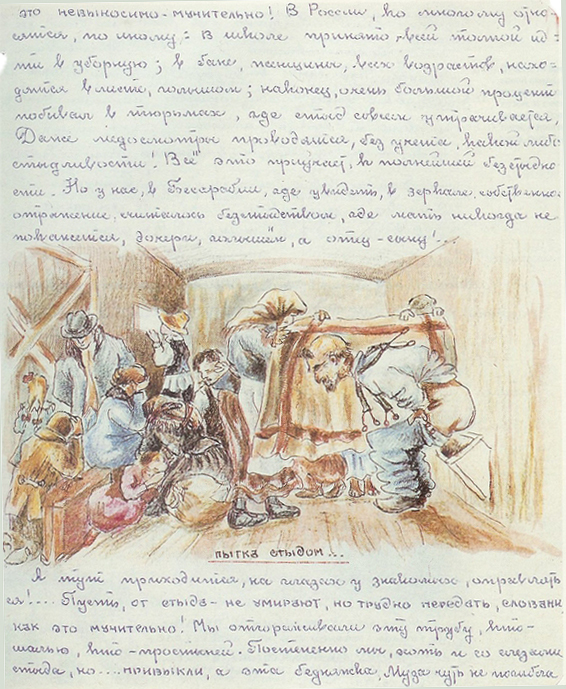 это невыносимо-мучительно! В России, ко многому отно-
сятся, по иному: в школе принято всей толпой ид-
ти в уборную; в бане, женщины, всех возрастов, нахо-
дятся вместе, голышом; наконец, очень большой процент
побывал в тюрьмах, где стыд совсем утрачивается.
Даже медосмотры проводятся, без учета, какой либо
стыдливости! Всё это приучает, к полнейшей бесстыдно
сти. Но у нас, в Бессарабии, где увидеть, в зеркале, собственное
отражение, считалось бесстыдством, где мать никогда не
покажется, дочери, голышом, а отец - сыну!...
ПЫТКА СТЫДОМ...
А тут приходится, на глазах у знакомых, оправлять
ся!.... Пусть, от стыда - не умирают, но трудно передать, словами
как это мучительно! Мы отгораживали эту трубу, кто-
шалью, кто-простыней. Постепенно мы, хоть и со слезами
стыда, но.... привыкли, а эта бедняжка, Муза чуть не погибла